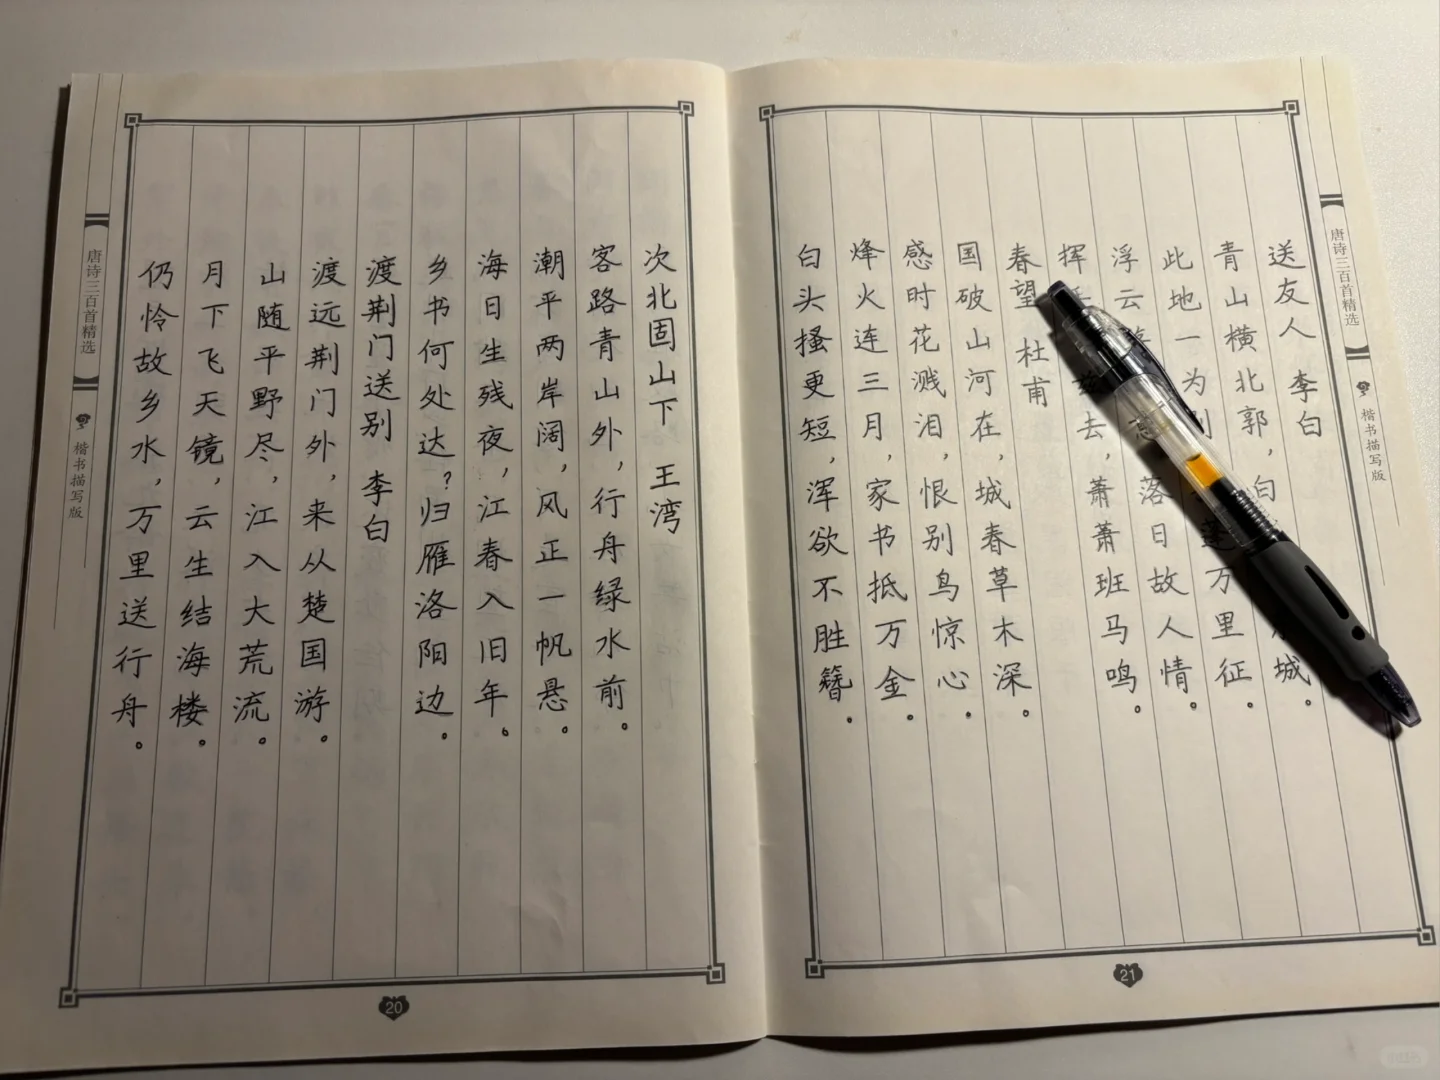 唐诗三百首精选
楷书描写版
次北固山下 王湾
客路青山外，行舟绿水前。
潮平两岸阔，风正一帆悬。
海日生残夜，江春入旧年。
乡书何处达？归雁洛阳边。
渡荆门送别 李白
渡远荆门外，来从楚国游。
山随平野尽，江入大荒流。
月下飞天镜，云生结海楼。
仍怜故乡水，万里送行舟。
20
唐诗三百首精选
楷书描写版
送友人 李白
青山横北郭，白城。
此地一为别蓬万里征。
浮云意落日故人情。
挥兹去，萧萧班马鸣。
春望 杜甫
国破山河在，城春草木深。
感时花溅泪，恨别鸟惊心。
烽火连三月，家书抵万金。
白头搔更短，浑欲不胜簪。
21